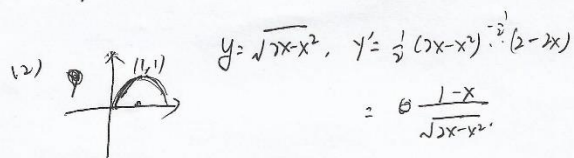 (2) (1,1) y=√(2x-x²), y'=½(2x-x²)^(-½)·(2-2x)
= (1-x)/√(2x-x²).